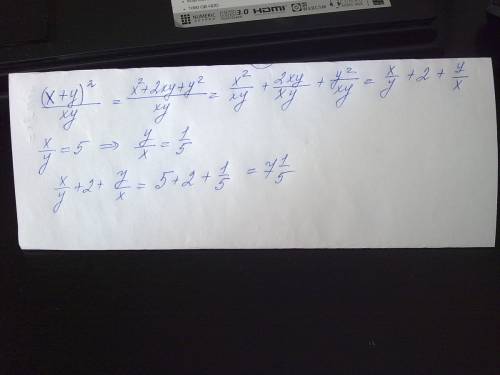 NUMERIC
3.0 HDMI
(x+y)²/xy = x²+2xy+y²/xy = x²/xy + 2xy/xy + y²/xy = x/y + 2 + y/x
x/y = 5 ⇒ y/x = 1/5
x/y + 2 + y/x = 5 + 2 + 1/5 = 7 1/5